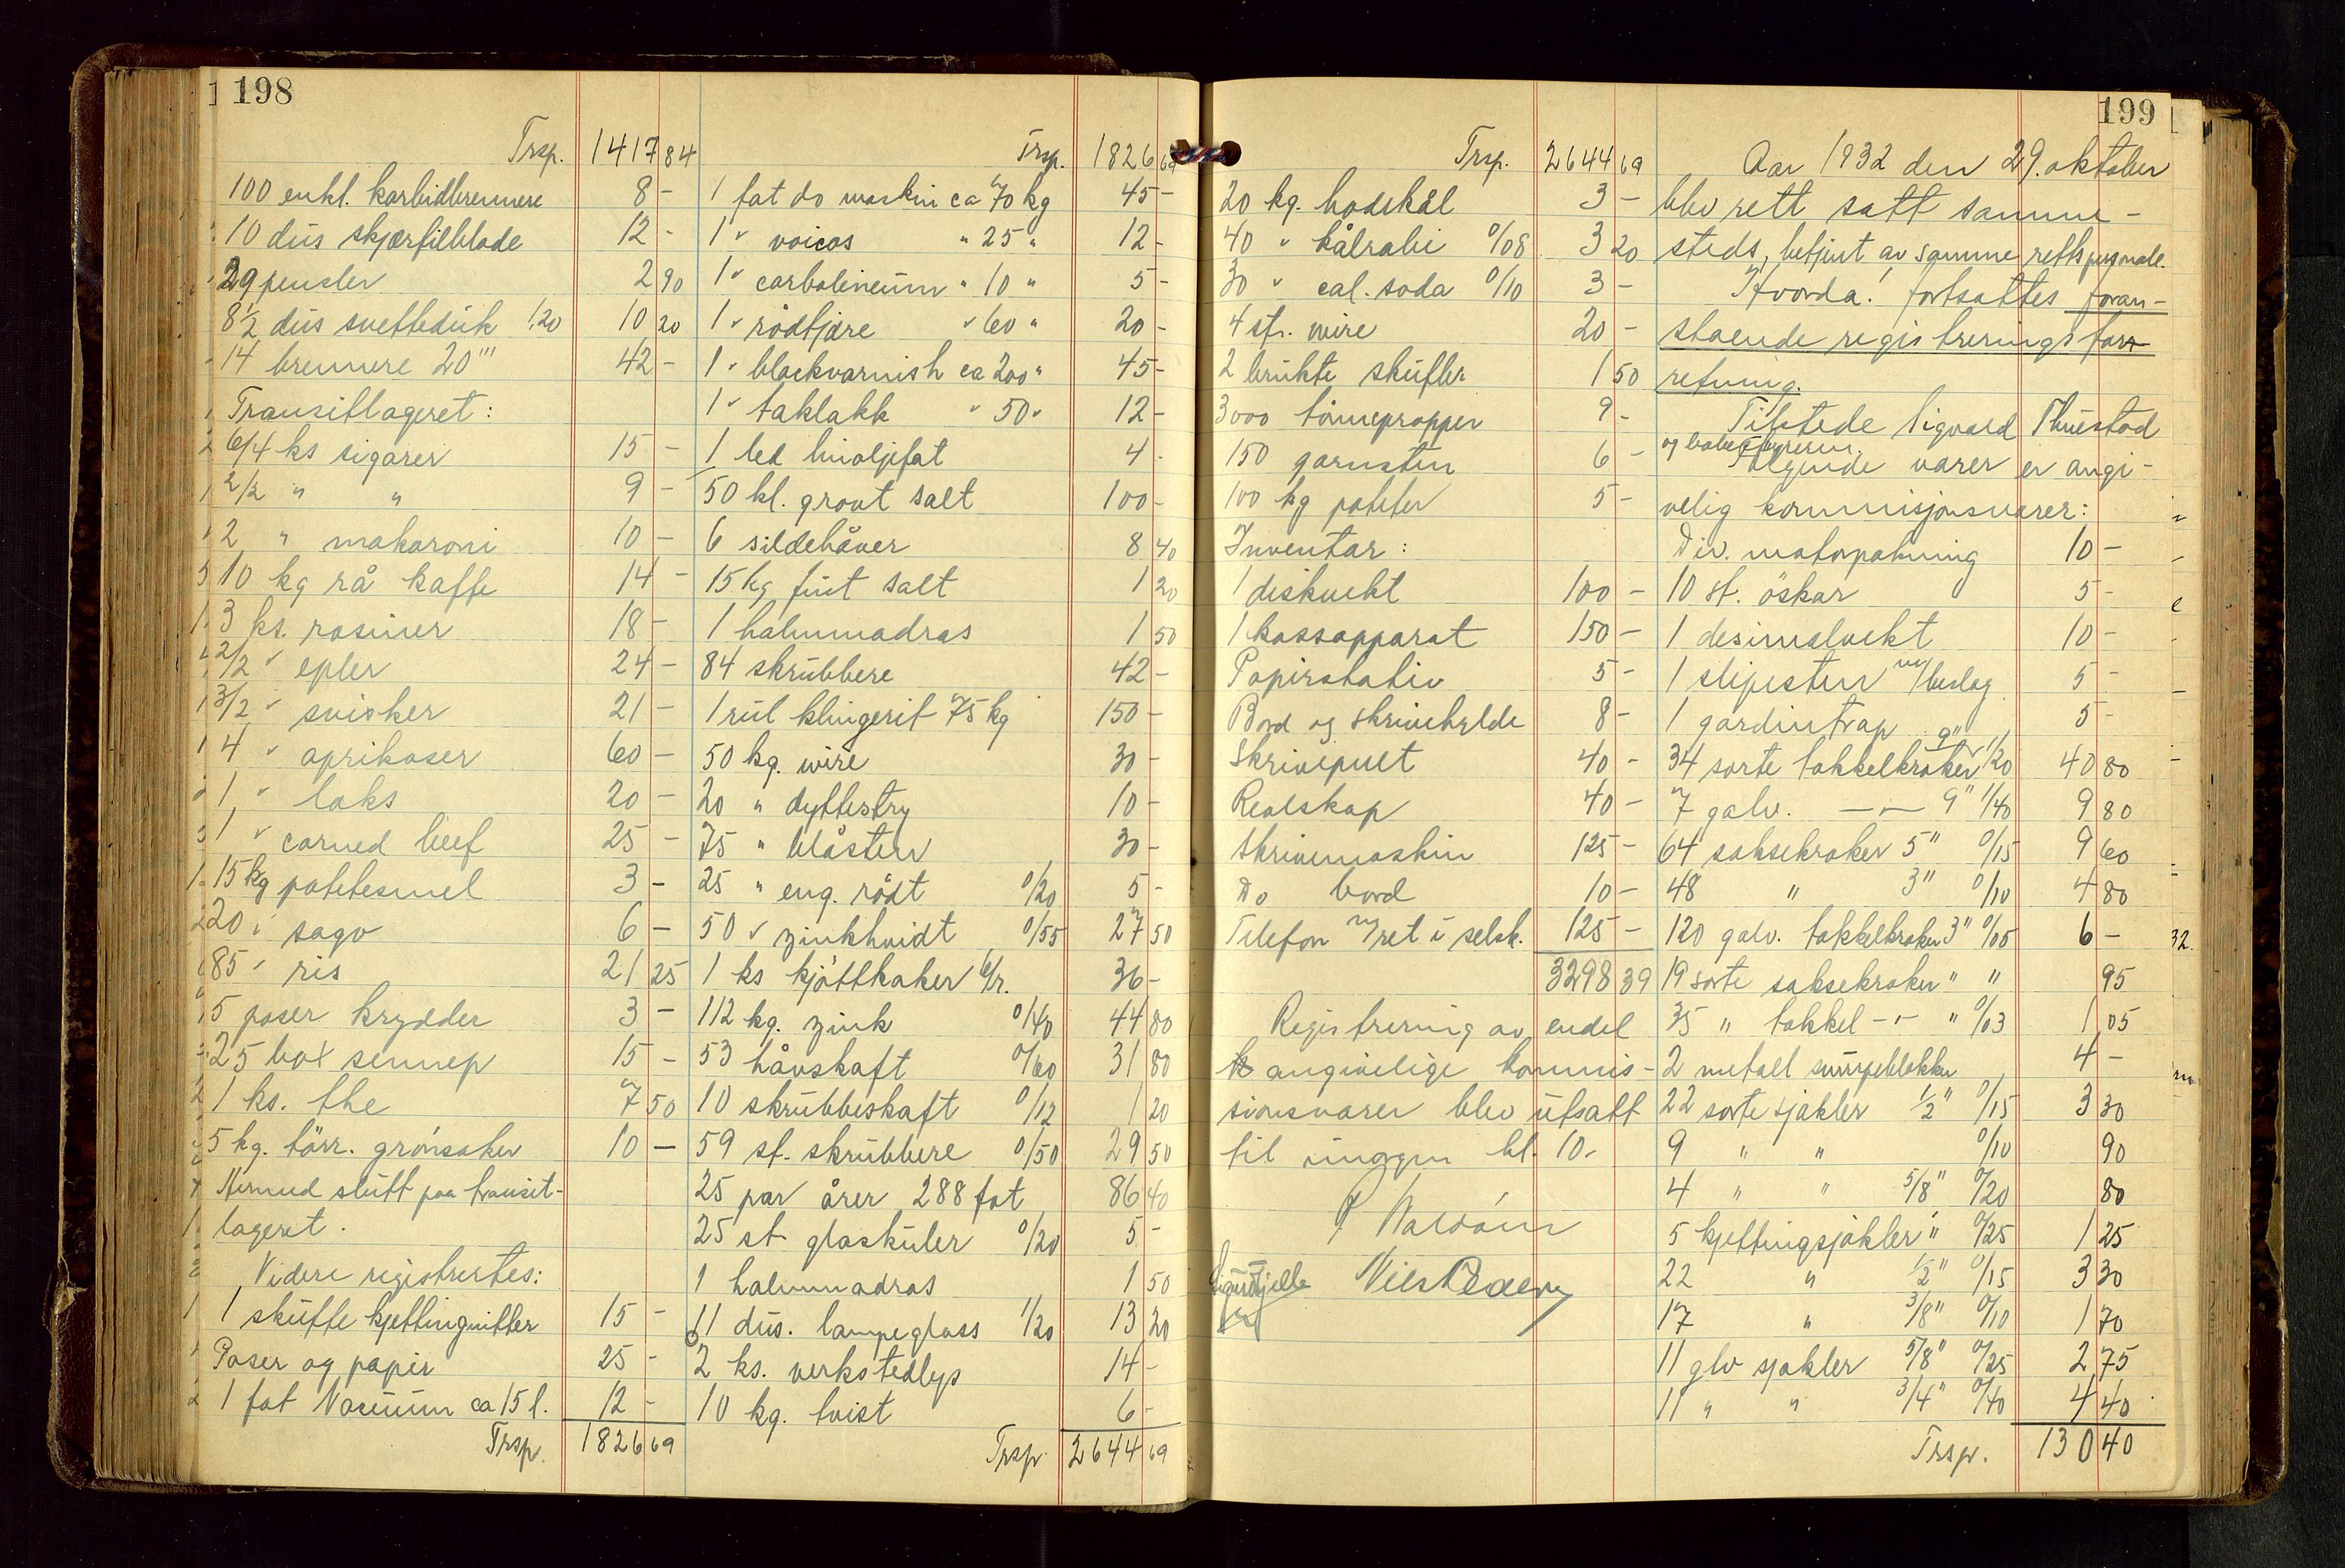 198
Trsp. 1417 84
100 enkl. karbidbrennere 8 -
10 düs skjærfilblade 12 -
29 pensler 2 90
8 1/2 düs svetteduk 1,20 10 20
14 brennere 20''' 42 -
Transitlageret:
6/4 ks sigarer 15 -
2/2 " " 9 -
2 " makaroni 10 -
10 kg rå kaffe 14 -
3 ks. rosiner 18 -
2/2 " epler 24 -
3/2 " svisker 21 -
4 " aprikoser 60 -
1 " laks 20 -
1 " corned beef 25 -
15 kg potetesmel 3 -
20 " sago 6 -
85 " ris 21 25
5 poser krydder 3 -
25 box sennep 15 -
1 ks. the 7 50
5 kg. törr. grönsaker 10 -
Hermed slutt paa transit-
lageret.
Videre registrertes:
1 skuffe kjettingnitter 15 -
Poser og papir 25 -
1 fat Vacuum ca 15 l. 12 -
Trsp. 1826 69
Trsp. 1826 69
1 fat do maskin ca 70 kg 45 -
1 " voicos " 25 " 12 -
1 " carbolineum " 10 " 5 -
1 " rödtjære " 60 " 20 -
1 " blackvarnish ca 200 " 45 -
1 " taklakk " 50 " 12 -
1 led linoljefat 4 -
50 hl. grovt salt 100 -
6 sildehåver 8 40
15 kg fint salt 1 20
1 halmmadras 1 50
84 skrubbere 42 -
1 rul klingerit 75 kg 150 -
50 kg. wire 30 -
20 " dyttestry 10 -
75 " blåsten 30 -
25 " eng. rödt 0/20 5 -
50 " zinkhvidt 0/55 27 50
1 ks kjöttkaker 6/r. 36 -
112 kg. zink 0/40 44 80
53 håvskaft 0/60 31 80
10 skrubbeskaft 0/12 1 20
59 st. skrubbere 0/50 29 50
25 par årer 288 fot 86 40
25 st glaskuler 0/20 5 -
1 halmmadras 1 50
11 düs. lampeglass 1/20 13 20
2 ks. verkstedlys 14 -
10 kg. tvist 6 -
Trsp. 2644 69
199
Trsp. 2644 69
20 kg. hodekål 3 -
40 " kålrabi 0/08 3 20
30 " cal. soda 0/10 3 -
4 st. wire 20 -
2 brukte skufler 1 50
3000 tönnepropper 9 -
150 garnsten 6 -
100 kg poteter 5 -
Inventar:
1 diskvekt 100 -
1 kassapparat 150 -
Papirstativ 5 -
Bord og skrivehylde 8 -
Skrivepult 40 -
Realskap 40 -
Skrivemaskin 125 -
Do bord 10 -
Telefon m/ret i selsk. 125 -
3298 39
Registrering av endel
angivelige kommis-
sionsvarer blev utsatt
til imorgen kl. 10.
Nils
Aar 1932 den 29. oktober
blev rett satt samme-
steds, betjent av samme rettspersonale.
Hvorda! fortsattes foran-
staaende registreringsfor-
retning.
Tilstede Sigvard Thuestad
og bobestyreren.
Følgende varer er angi-
velig kommisjonsvarer:
Div. motorpakning 10 -
10 st. öskar 5 -
1 desimalvekt 10 -
1 slipesten m/beslag 5 -
1 gardintrap 5 -
34 sorte takkelkroker 9" 1/20 40 80
7 galv. -"- 9" 1/40 9 80
64 saksekroker 5" 0/15 9 60
48 " 3" 0/10 4 80
120 galv. takkelkroker 3" 0/05 6 -
19 sorte saksekroker " " 95
35 " takkel -"- " 0/03 1 05
2 metall snurpeblokker 4 -
22 sorte sjakler 1/2" 0/15 3 30
9 " " 0/10 90
4 " " 5/8" 0/20 80
5 kjettingsjakler " 0/25 1 25
22 " 1/2" 0/15 3 30
17 " 3/8" 0/10 1 70
11 glv sjakler 5/8" 0/25 2 75
11 " " 3/4" 0/40 4 40
Trsp. 130 40